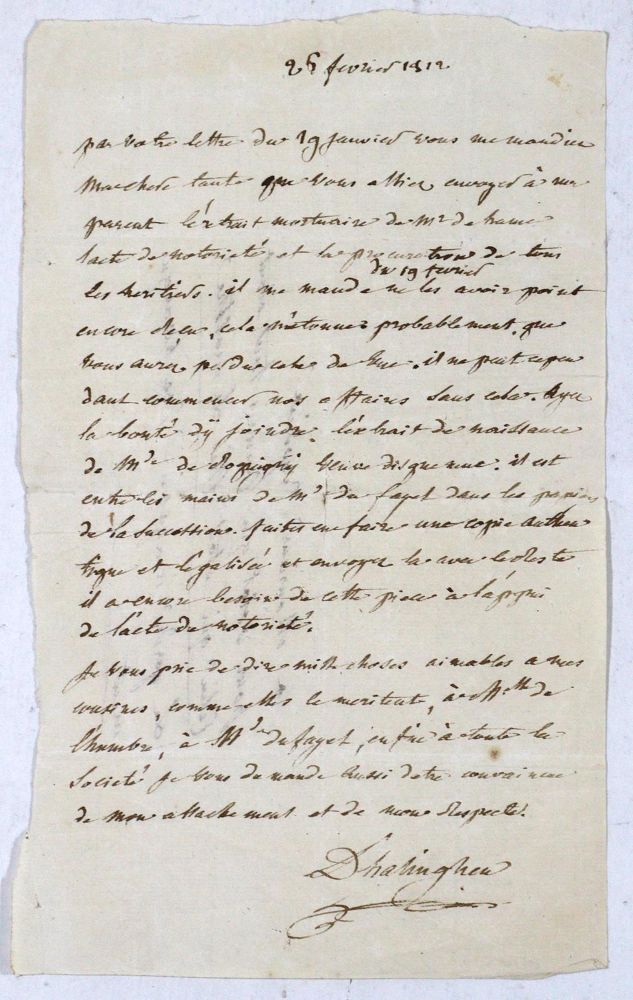 26 fevrier 1812
par votre lettre du 19 janvier vous me mandiez
ma chere tante que vous alliez envoyer à mr
parent l'extrait mortuaire de Mr de
l'acte de notorieté et la procuration de tous
du 19 fevrier
les heritiers. il me mande ne les avoir point
encore reçu, cela m'etonne probablement que
vous aurez perdu cela de vue. il ne peut cepen
dant commencer nos affaires sans cela. Ayez
la bonté d'y joindre l'extrait de naissance
de Mde de veuve disquemue. il est
entre les mains de Mr du fayet dans les papiers
de la succession. faites en faire une copie authen
tique et légalisée et envoyez la avec le reste
il a encore besoin de cette piece à l'appui
de l'acte de notorieté.
Je vous prie de dire mille choses aimables a mes
cousines, comme elles le meritent, à Melle de
Chambre, à Mr du fayet, enfin à toute la
societé Je vous demande aussi detre convaincue
de mon attachement et de mon respect.
Dhalinghen